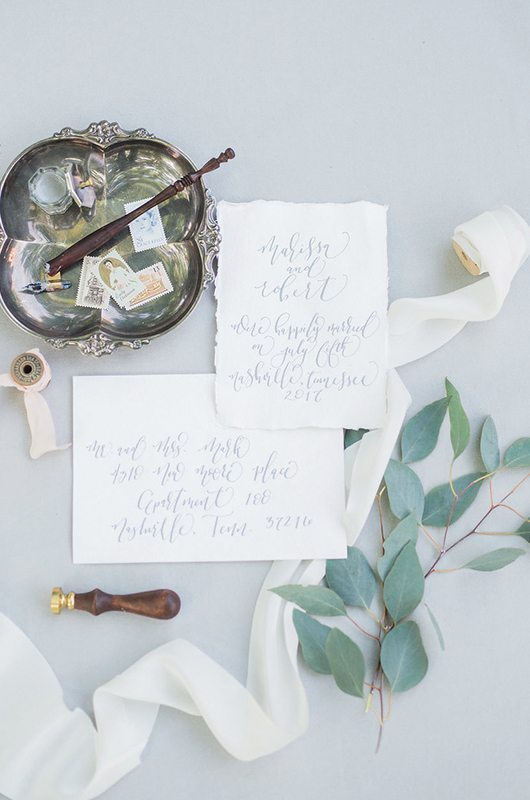 Marissa
and
robert
were happily married
on july fifth
Nashville, Tennessee
2016
Mr. and Mrs. Mark
4310 New Moore place
Apartment 180
Nashville, Tenn. 37216